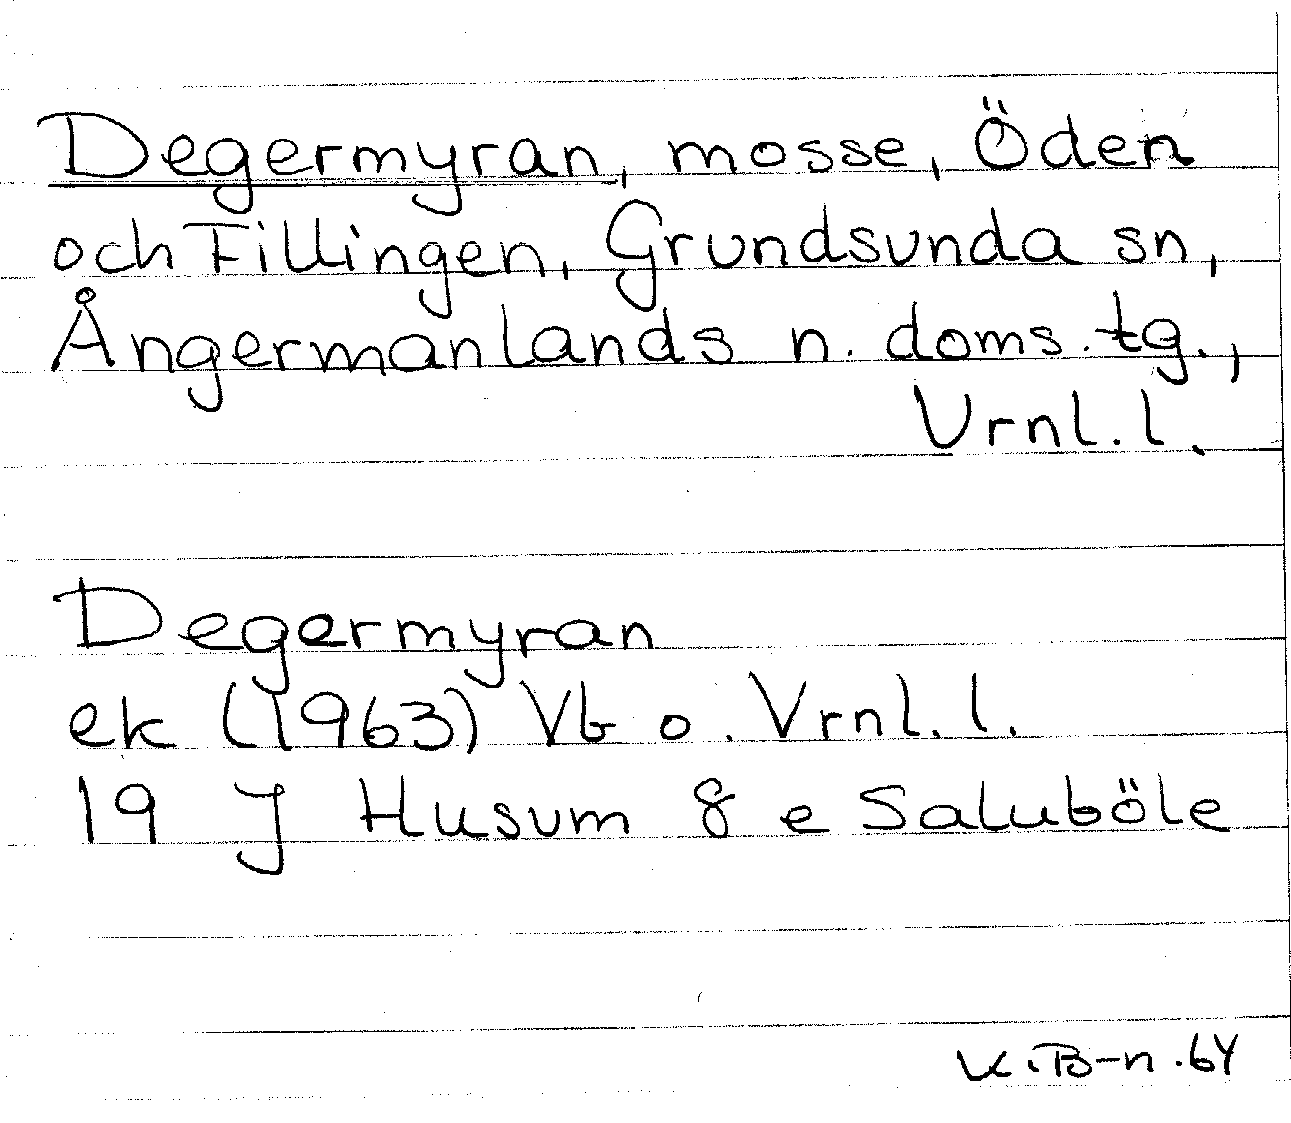 Degermyran, mosse, Öden
och Fillingen, Grundsunda sn,
Ångermanlands n. doms. tg.,
Vrnl. l.
Degermyran
ek (1963) Vb o. Vrnl. l.
19 J Husum 8 e Saluböle
K.B-n. 64